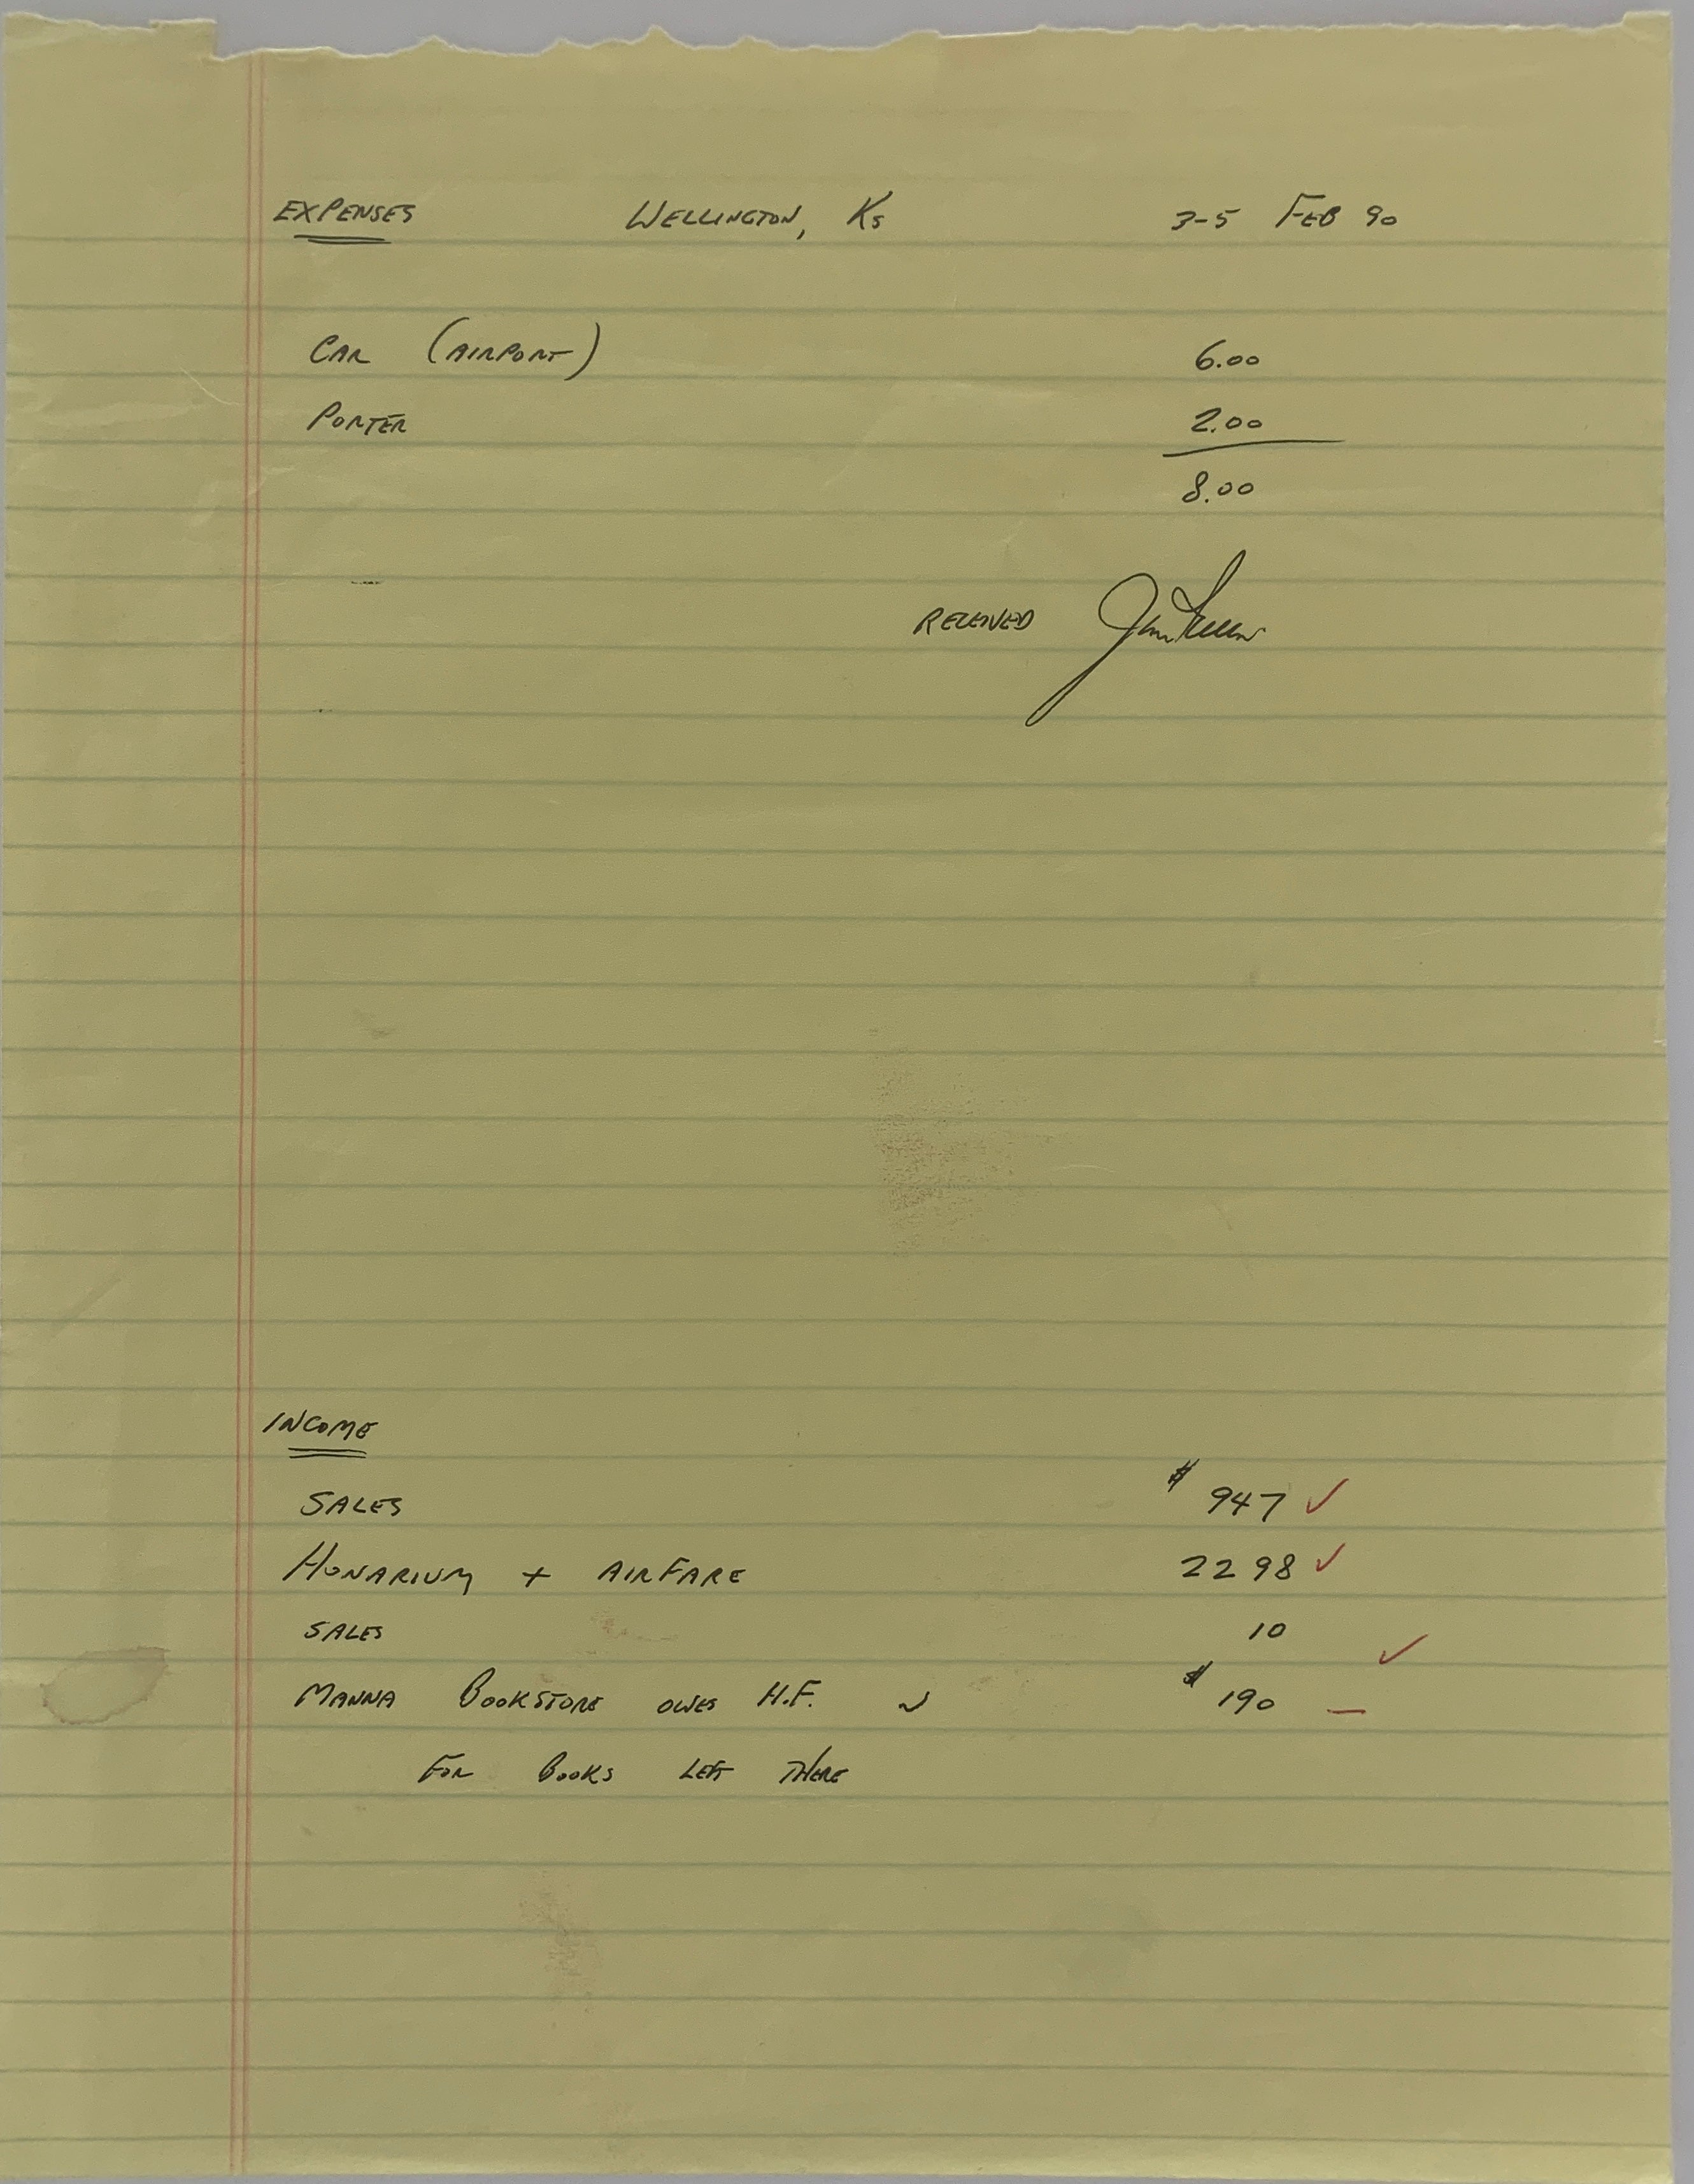 EXPENSES WELLINGTON, KS 3-5 FEB 90
CAR (AIRPORT) 6.00
PORTER 2.00
8.00
RECEIVED
INCOME
SALES $ 947 ✓
HONARIUM + AIRFARE 2298 ✓
SALES 10 ✓
MANNA BOOKSTORE OWES H.F. $ 190 —
FOR BOOKS LEFT THERE